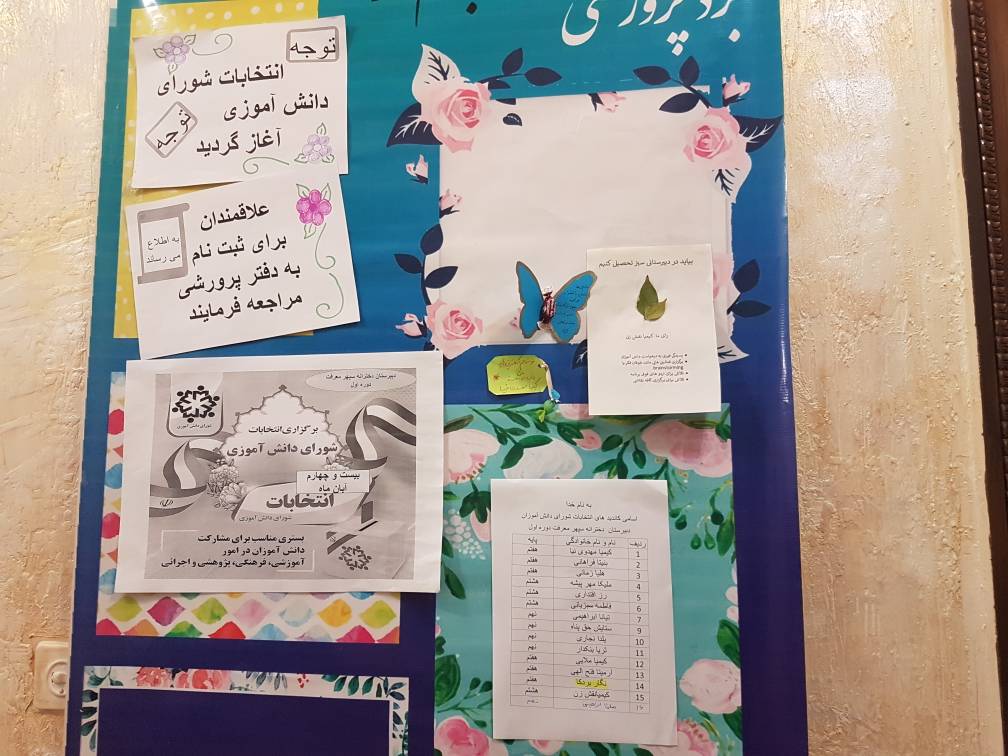 برد پرورشی
توجه
انتخابات شورای
دانش آموزی
آغاز گردید
توجه
علاقمندان
برای ثبت نام
به دفتر پرورشی
مراجعه فرمایند
به اطلاع
می رساند
دبیرستان دخترانه سپهر معرفت
دوره اول
شورای دانش آموزی
برگزاری انتخابات
شورای دانش آموزی
بیست و چهارم
آبان ماه
انتخابات
شورای دانش آموزی
بستری مناسب برای مشارکت
دانش آموزان در امور
آموزشی، فرهنگی، پژوهشی و اجرایی
بیایید در دبیرستانی سبز تحصیل کنیم
رای ما: کیمیا نقش زن
brainstorming
به نام خدا
اسامی کاندید های انتخابات شورای دانش آموزان
دبیرستان دخترانه سپهر معرفت دوره اول
ردیف نام و نام خانوادگی پایه
1 کیمیا مهدوی نیا هفتم
2 بنیتا فراهانی هفتم
3 هلیا زمانی هفتم
4 ملیکا مهر پیشه هشتم
5 رز اقتداری هشتم
6 فاطمه سبزیانی هشتم
7 تیانا ابراهیمی نهم
9 ستایش حق پناه نهم
10 یلدا نجاری نهم
11 ثریا بنکدار نهم
12 کیمیا ملایی نهم
13 ارمیتا فتح الهی هفتم
14 نگار یزدکیا هفتم
15 کیمیانقش زن هشتم